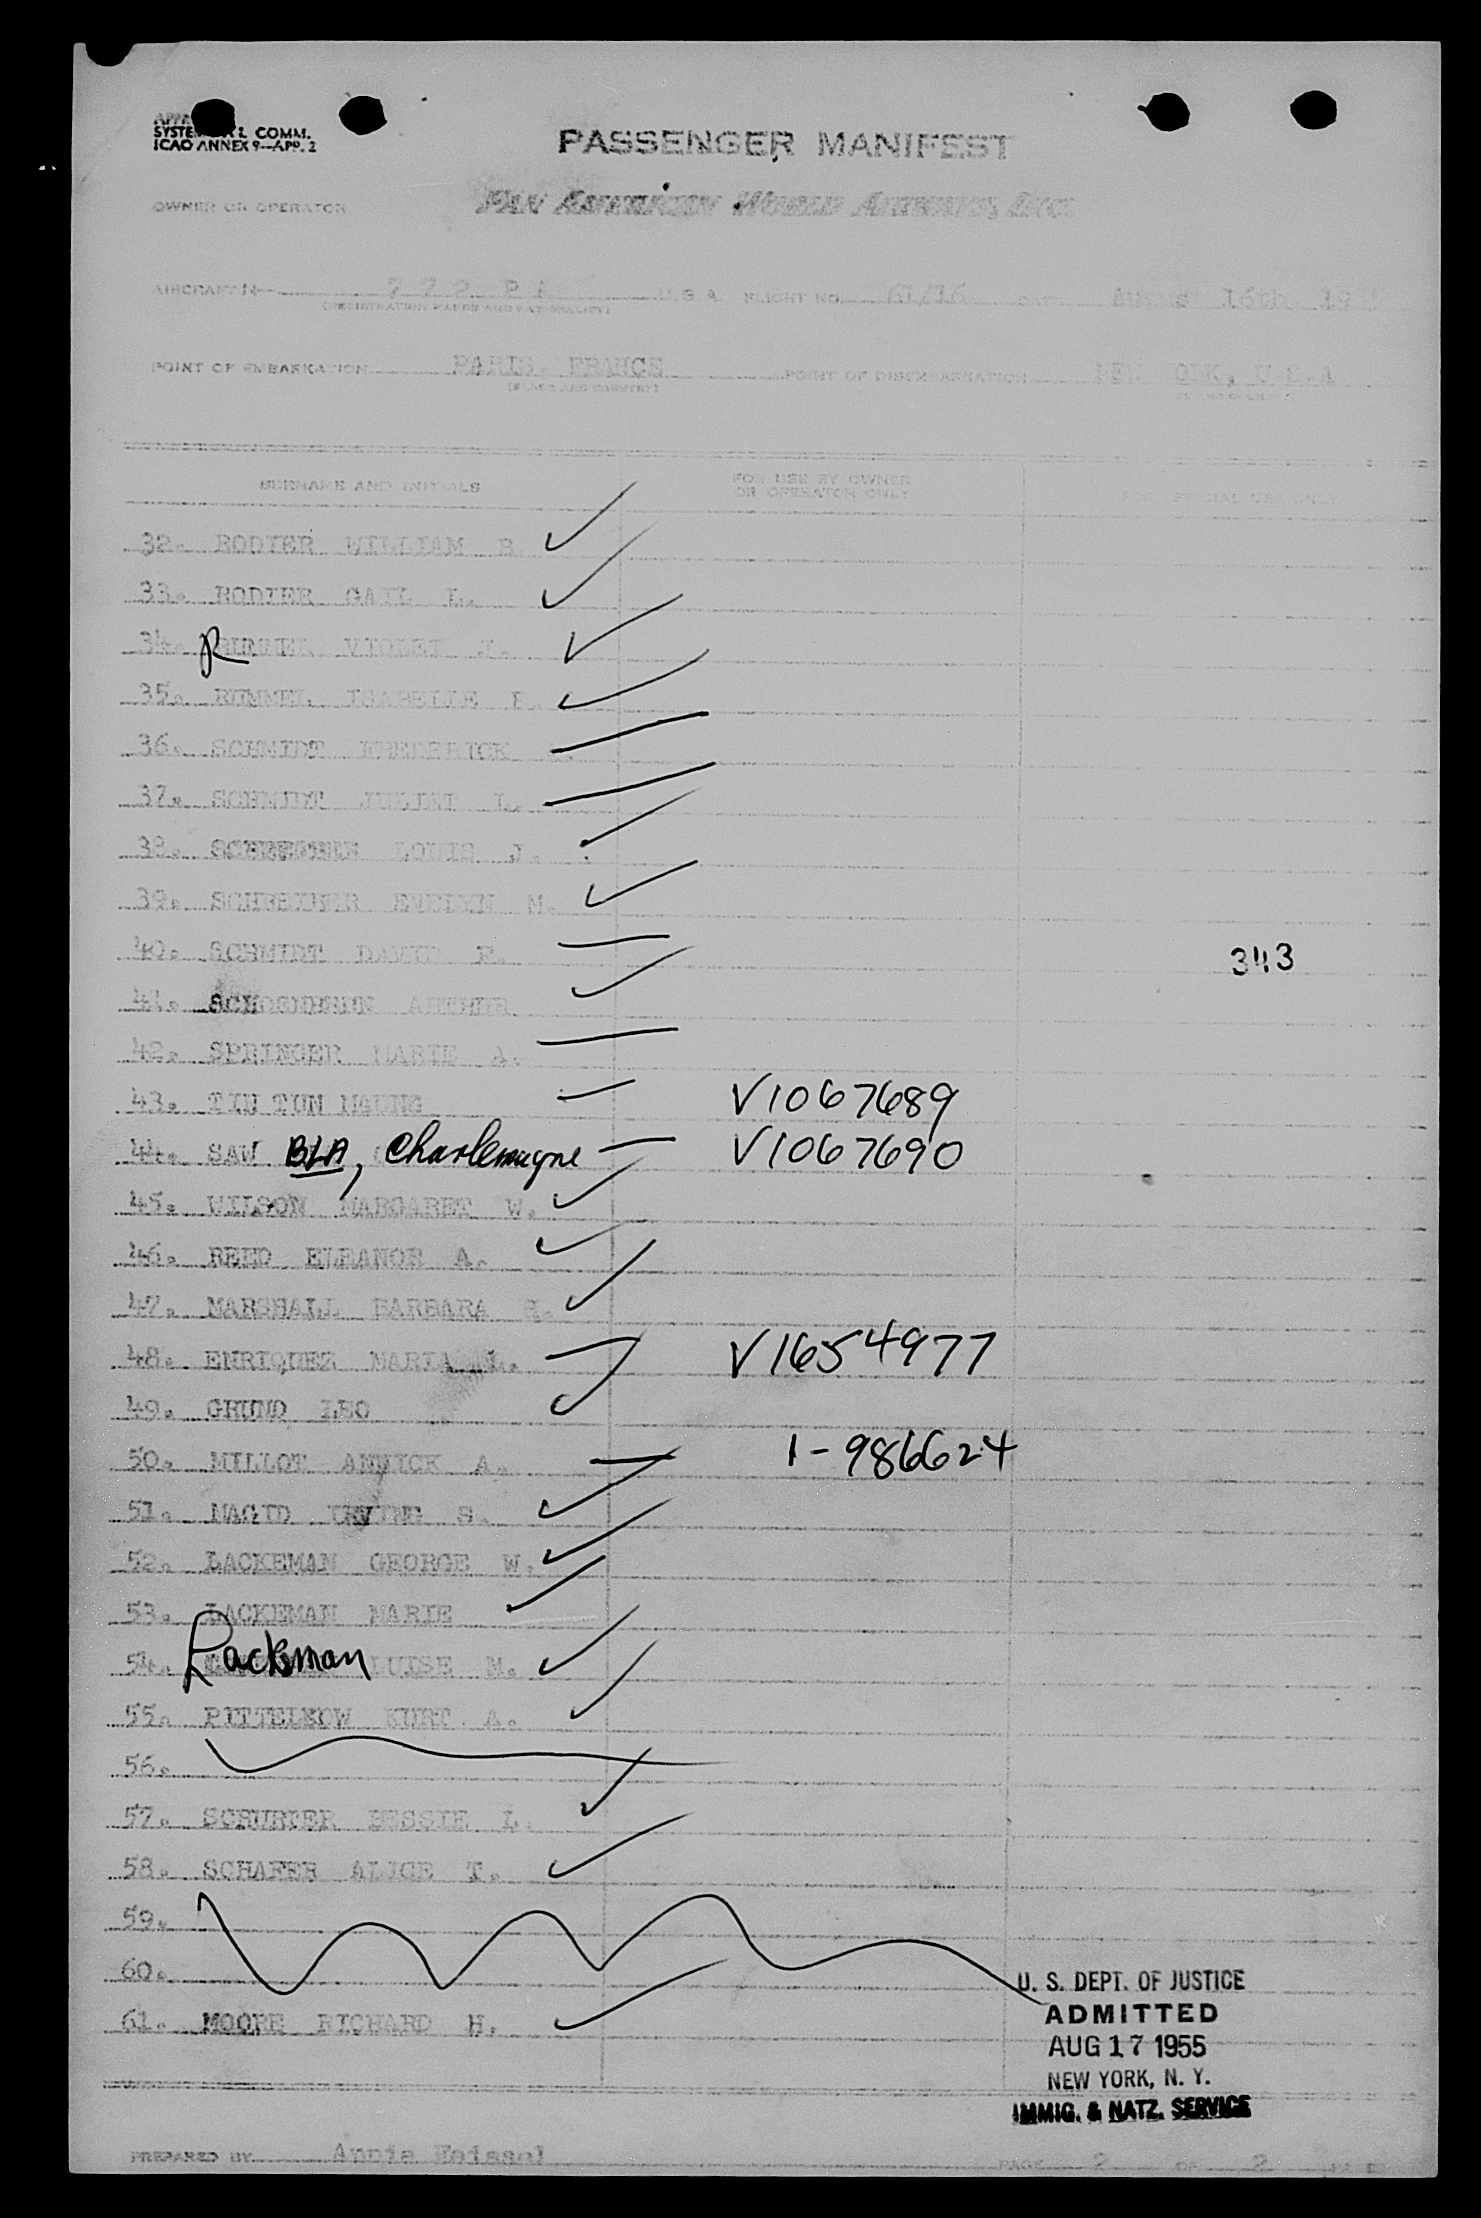 SYSTE COMM.
ICAO ANNEX 9—APP. 2
PASSENGER MANIFEST
OWNER OR OPERATOR PAN AMERICAN WORLD AIRWAYS, INC.
AIRCRAFT N U.S.A. FLIGHT NO. 61/16 16th
POINT OF EMBARKATION PARIS, FRANCE POINT OF DISEMBARKATION NEW YORK, U.S.A
SURNAME AND INITIALS FOR USE BY OWNER OR OPERATOR ONLY FOR OFFICIAL USE ONLY
32. RODIER WILLIAM
33. RODIER GAIL L.
34. R VIOLET
35. ISABELLE
36. SCHMIDT FREDERICK
37. SCHMIDT L.
38. LOUIS J.
39. EVELYN M.
40. SCHMIDT DAVID 343
41. ARTHUR
42. SPRINGER MARIE A.
43. TIN TUN MAUNG V1067689
44. SAW BLA, Charlemagne V1067690
45. WILSON MARGARET W.
46. REED ELEANOR A.
47. MARSHALL BARBARA
48. ENRIQUEZ MARIA L. V1654977
49. GRUND LEO
50. MILLOT ANNICK A. 1-986624
51. MAGID IRVING S.
52. LACKEMAN GEORGE W.
53. LACKEMAN MARIE
54. Lackman LUISE M.
55. PITTELKOW KURT A.
56.
57. BESSIE L.
58. SCHAFER ALICE T.
59.
60.
61. MOORE RICHARD H.
U. S. DEPT. OF JUSTICE
ADMITTED
AUG 17 1955
NEW YORK, N. Y.
IMMIG. & NATZ. SERVICE
PREPARED BY Annie PAGE 2 OF 2